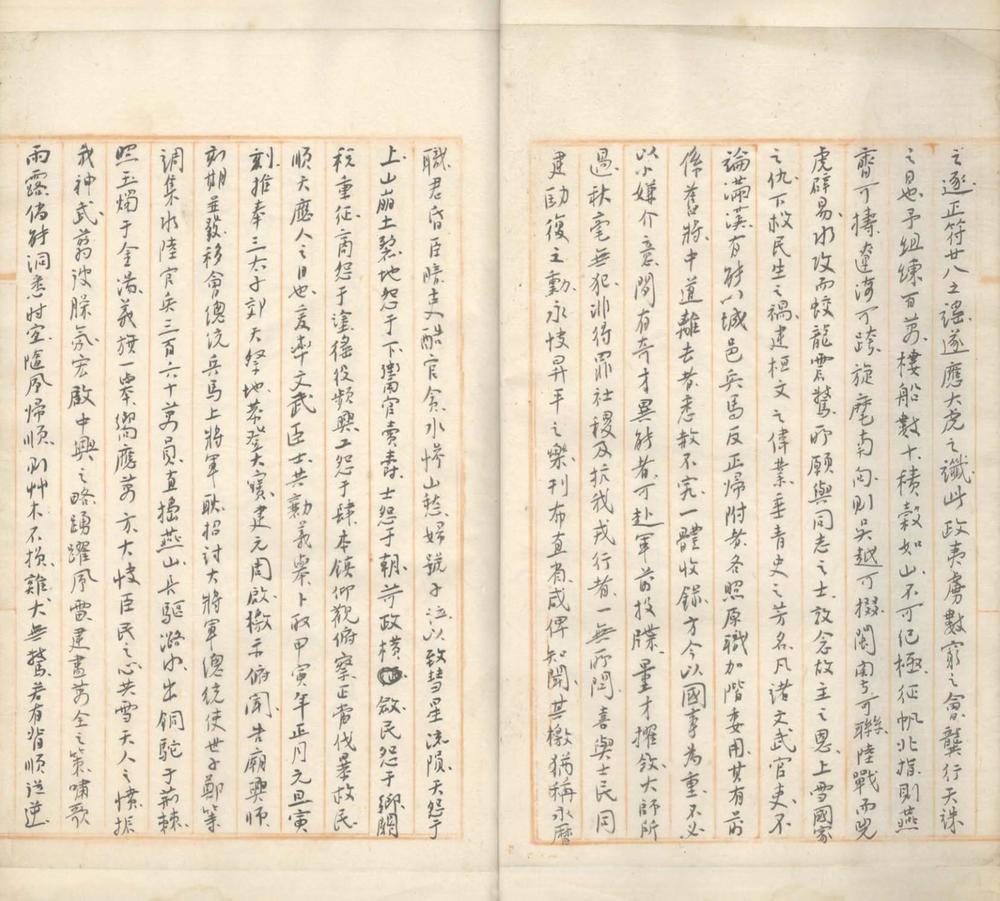 之遂正符廿八之謠遂應大虎之讖此政夷虜數窮之會龔行天誅
之日也予組練百萬樓船數十積穀如山不可紀極征帆北指則燕
齊可擣遼海可跨旋麾南向則吳越可掇閩粵可聯陸戰而兕
虎辟易水攻而蛟龍震驚所願與同志之士敦念故主之恩上雪國家
之仇下救民生之禍建桓文之偉業垂青史之芳名凡諸文武官吏不
論滿漢有能以城邑兵馬反正歸附者各照原職加階委用其有前
係舊將中道離去者悉赦不究一體收錄方今以國事為重不必
以小嫌介意間有奇才異能者可赴軍前投牒量才擢敘大師所
過秋毫無犯非得罪社稷及抗我戎行者一無所問喜與士民同
建勛復之勳永快昇平之樂刊布直省咸俾知聞其檄猶稱永曆
職君昏臣暗吏酷官貪水慘山愁婦號子泣以致彗星流隕天怨于
上山崩土裂地怨于下鬻官賣壽士怨于朝苛政橫斂民怨于鄉關
稅重征商怨于塗徭役頻興工怨于肆本鎮仰觀俯察正當伐暴救民
順天應人之日也爰率文武臣士共勷義舉卜取甲寅年正月元旦寅
刻推奉三太子郊天祭地恭登大寶建元周啟檄示俯聞告廟興師
刻期並發移會總統兵馬上將軍耿招討大將軍總統使世子鄭等
調集水陸官兵三百六十萬員直搗燕山長驅潞水出銅駝于荊棘
照玉燭于金湯義旗一舉響應萬方大快臣民之心共雪天人之憤振
我神武剪彼臊氛宏啟中興之略踴躍風雷建畫萬全之策嘯歌
雨露倘能洞悉時宜隨風歸順則艸木不損雞犬無驚若有背順從逆